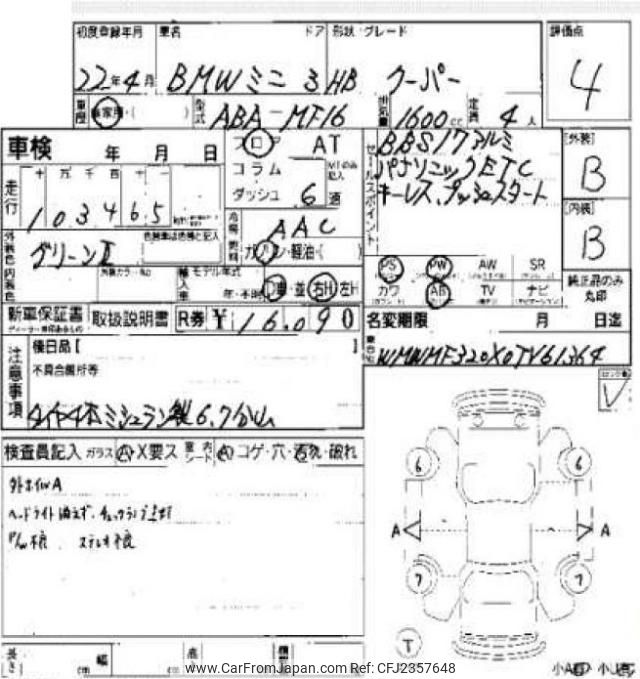 初度登録年月 車名 ドア 形状・グレード 評価点
22年4月 BMWミニ 3 HB クーパー 4
車歴 自家用・( ) 型式 ABA-MF16 排気量 1600cc 定員 4人
車検 年 月 日 フロア AT
コラム
ダッシュ 6速
セールスポイント BBS17アルミ
パナソニックETC
キーレス、プッシュスタート
[外装] B
[内装] B
走行 十万千百十一
103465
冷房 AAC
燃料 ガソリン・軽油・( )
外装色 グリーンII 色替車は色種と記入
内装色 外装カラーNo 輸入車 モデル年式
年・不明 D車・並 右H 左H
PS PW AW SR
カワ AB TV ナビ
純正品のみ丸印
新車保証書 取扱説明書 R券 ¥16,090
名変期限 月 日迄
車台No WMWMF320X0TV61364
注意事項 後日品 [ ]
不具合箇所等
タイヤ4本ミシュラン製 6.7分山
検査員記入 ガラス A X要ス 室内シート A コゲ・穴・汚れ・破れ
外ホイルA
ヘッドライト消えず、チェックランプ点灯
P/w不良、ステレオ不良
6 6
A A
7 7
T
長さ cm 幅 cm 高
www.CarFromJapan.com Ref: CFJ2357648
小A 小U